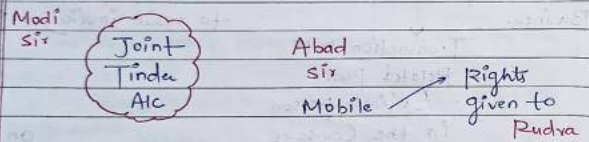 Modi
Sir
Joint
Tinder
A/c
Abad
Sir
Mobile
Rights
given to
Rudra